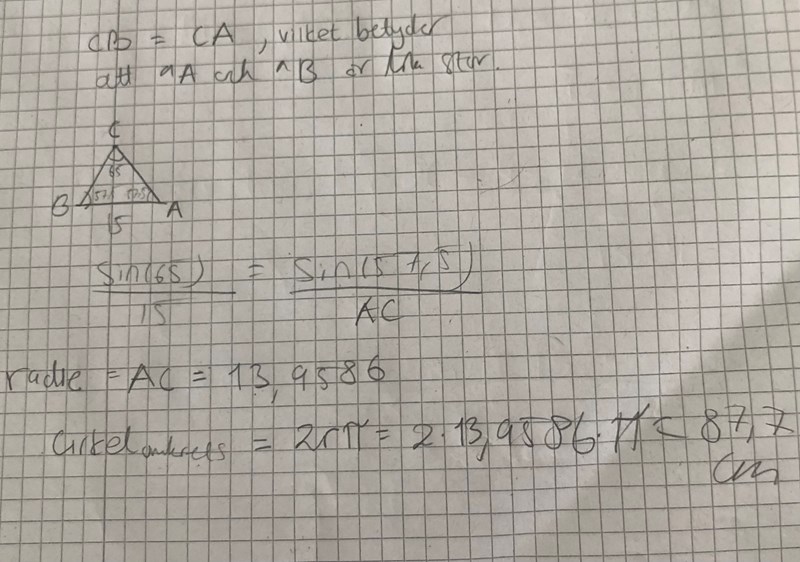 CB = CA, vilket betyder
att ∧A och ∧B är lika stor.
C
65
B 57,5 57,5 A
15
sin(65) = sin(57,5)
15 AC
radie = AC = 13,9586
Cirkelomkrets = 2rπ = 2·13,9586·π = 87,7
cm